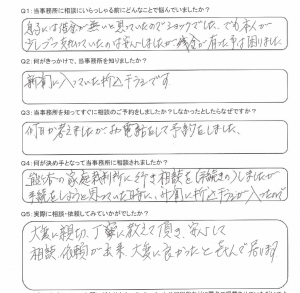 Q1: 当事務所に相談にいらっしゃる前にどんなことで悩んでいましたか？
息子には借金が無いと思っていたのでショックでした。でも本人が
Q2: 何がきっかけで、当事務所を知りましたか？
新聞に入っていた折込チラシです
Q3: 当事務所を知ってすぐに相談のご予約をしましたか？しなかったとしたらなぜですか？
何日か考えましたが お電話をして予約をしました。
Q4: 何が決め手となって当事務所に相談されましたか？
の家庭裁判所に行き相談を（手続きの）しましたが
手続をしようと思っていた時に、新聞に折込チラシが入ったので
Q5: 実際に相談・依頼してみていかがでしたか？
大変に親切、丁寧に教えて頂き、安心して
相談、依頼が出来 大変に良かったと喜んで居ります